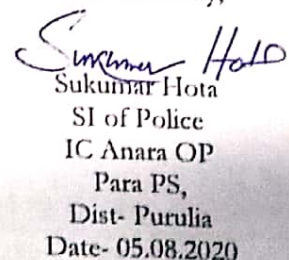 Sukumar Hota
Sukumar Hota
SI of Police
IC Anara OP
Para PS,
Dist- Purulia
Date- 05.08.2020